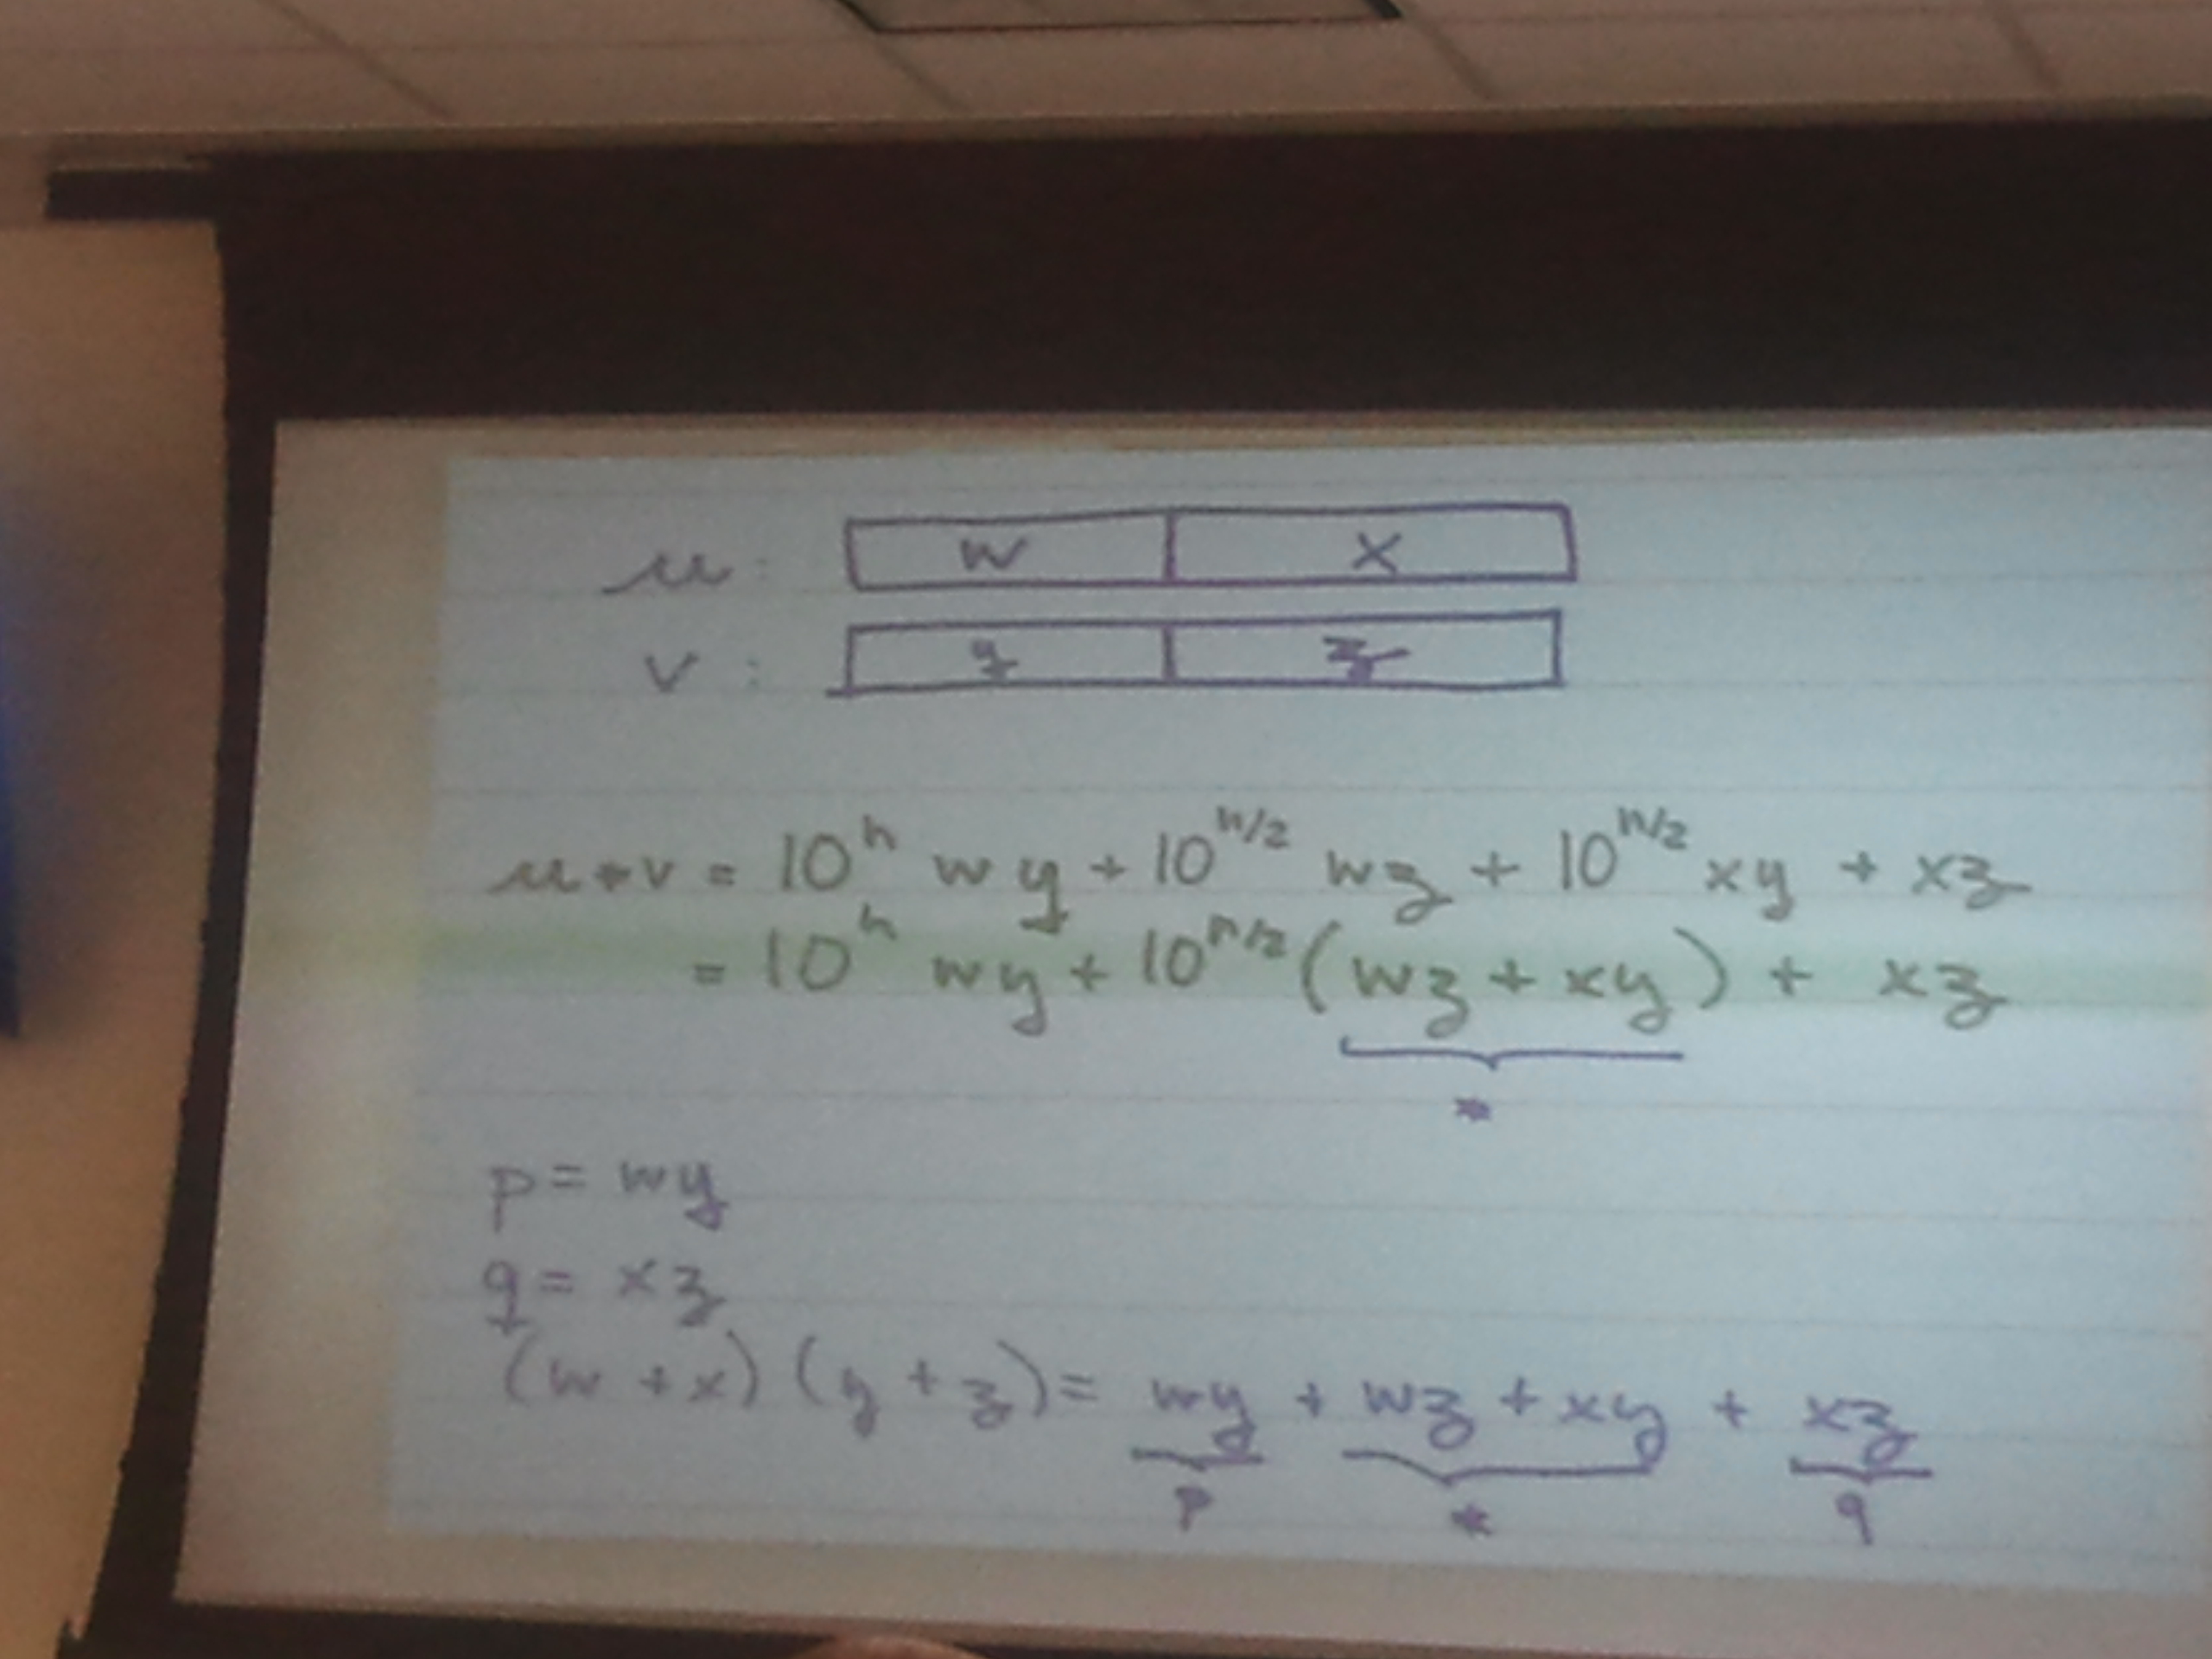 u: w x
v: y z
u*v = 10^n wy + 10^n/2 wz + 10^n/2 xy + xz
= 10^n wy + 10^n/2 (wz + xy) + xz
*
p = wy
q = xz
(w + x) (y + z) = wy + wz + xy + xz
p * q